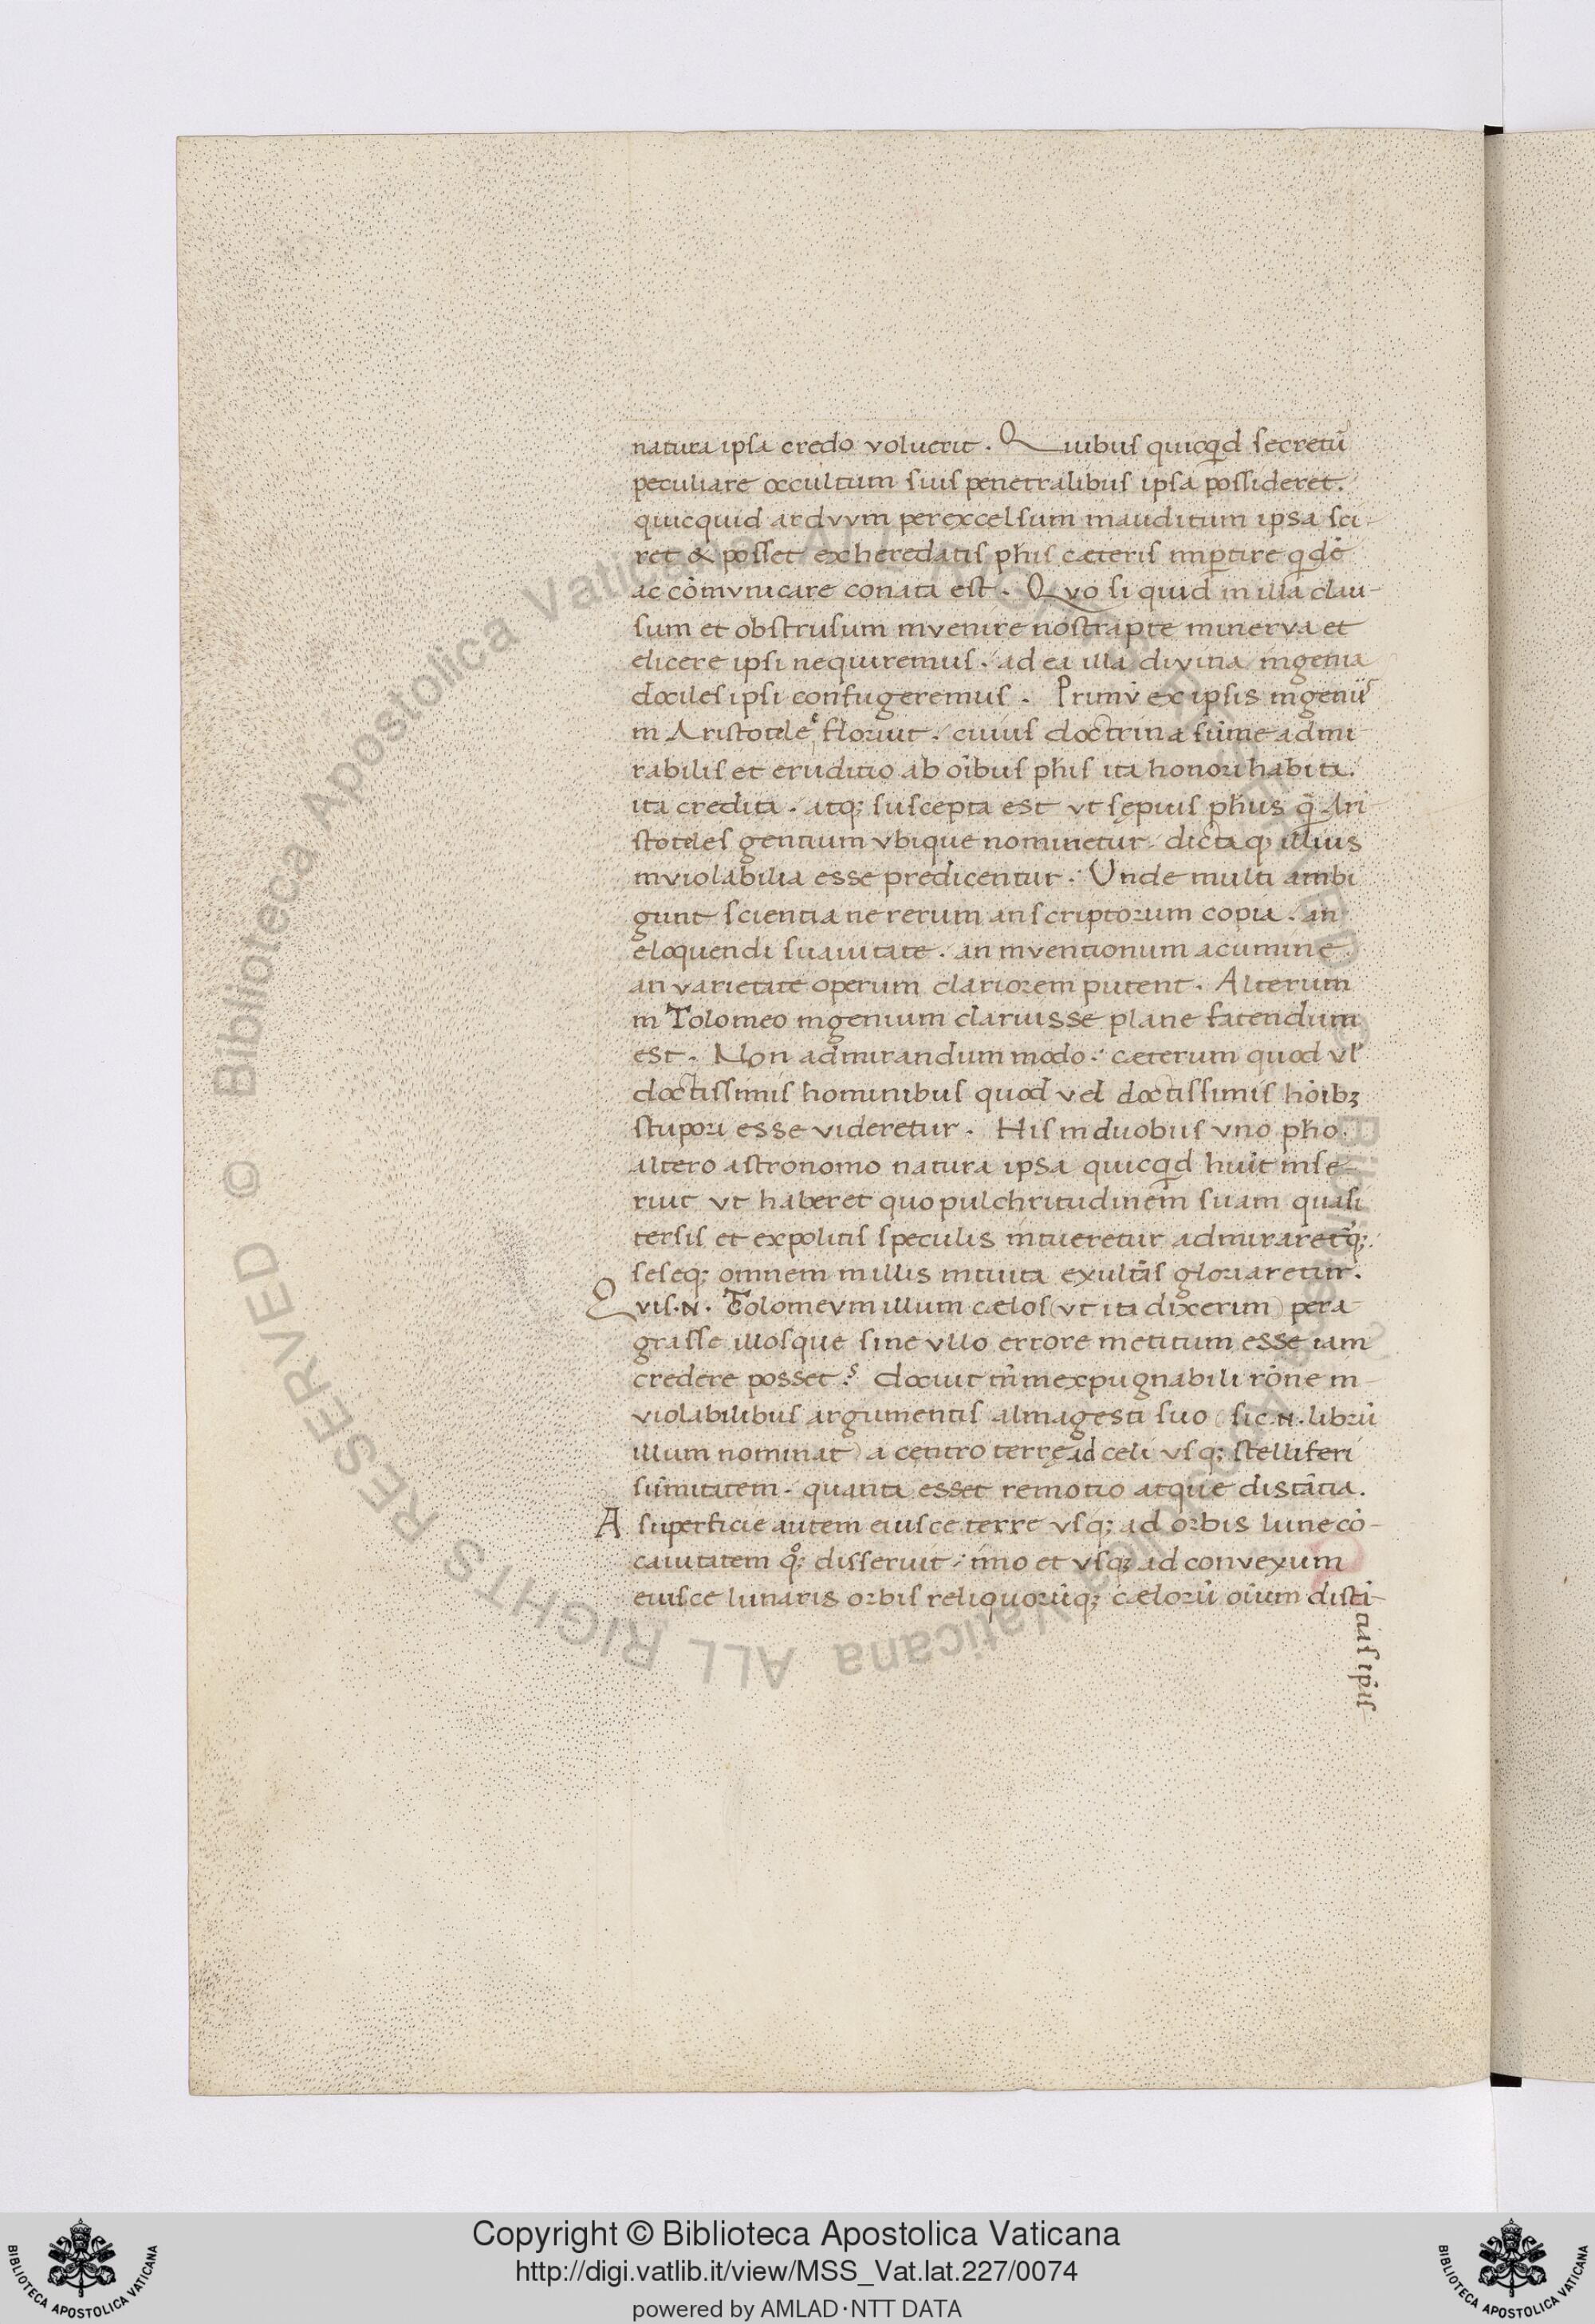 natura ipsa credo voluerit. Quibus quicqd secretū
peculiare occultum suis penetralibus ipsa possideret.
quicquid ardvvm perexcelsum inauditum ipsa sci-
ret & posset exheredatis phis cæteris impertire qdē
ac cōmvnicare conata est. Qvo si quid in illa clau-
sum et obstrusum invenire nostrapte minerva et
elicere ipsi nequiremus. ad ea illa divina ingenia
dociles ipsi confugeremus. Primū ex ipsis ingeniis
in Aristotele floruit. cuius doctrina sūme admi
rabilis et eruditio ab oībus phis ita honori habita.
ita credita. atq; suscepta est vt sępius phus q̄ Ari
stoteles gentium vbique nominetur. dictaq; illius
inviolabilia esse predicentur. Unde multi ambi
gunt scientia ne rerum an scriptorum copia. an
eloquendi suauitate. an inventionum acumine.
an varietate operum clariorem putent. Alterum
in Tolomeo ingenium claruisse plane fatendum
est. Non admirandum modo. cæterum quod vl
doctissimis hominibus quod vel doctissimis hoībȝ
stupori esse videretur. His in duobus vno pho.
altero astronomo natura ipsa quicqd huit inse-
ruit vt haberet quo pulchritudinem suam quasi
tersis et expolitis speculis intueretur admiraretq;.
seseq; omnem in illis intuita exultās gloriaretur.
Qvis .N. Tolomevm illum cælos (vt ita dixerim) pera
grasse illosque sine vllo errore metitum esse iam
credere posset? docuit tn̄ inexpugnabili rōne in-
violabilibus argumentis almagesti suo (sic .N. librū
illum nominat) a centro terrę ad celi vsq; stelliferi
sūmitatem. quanta esset remotio atque distātia.
A superficie autem eiusce terre vsq; ad orbis lune cō-
cauitatem qo; disseruit. imo et vsq; ad convexum
eiusce lunaris orbis reliquorūq; cælorū oīum distā-
cias ipis
Copyright © Biblioteca Apostolica Vaticana
http://digi.vatlib.it/view/MSS_Vat.lat.227/0074
powered by AMLAD·NTT DATA
BIBLIOTECA APOSTOLICA VATICANA
BIBLIOTECA APOSTOLICA VATICANA
© Biblioteca Apostolica Vaticana ALL RIGHTS RESERVED